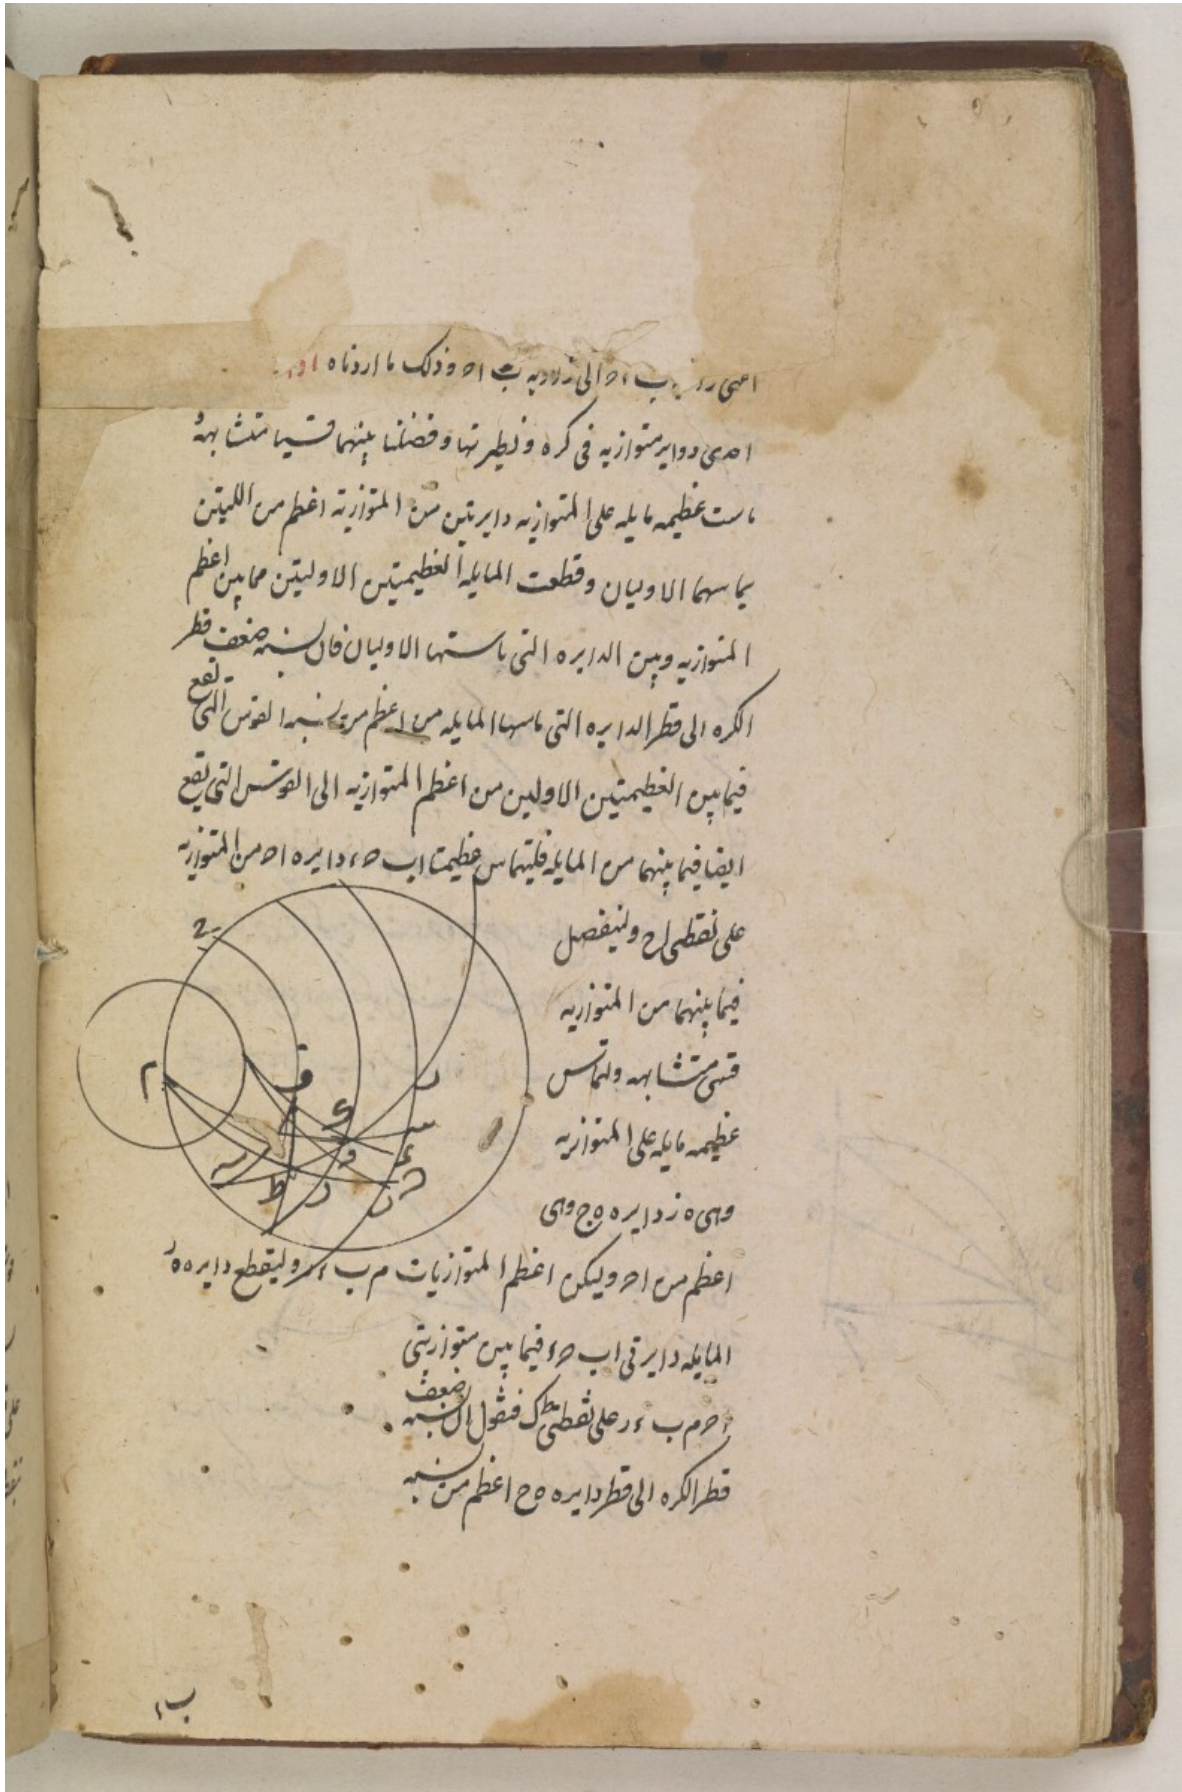 الى زاويه ب ا ح وذلك ما اردناه اذا
احدى دواير متوازيه فى كره ونظيرتها وفصلتا بينهما قسيا متشابهة
ماست عظيمه مايله على المتوازيه دايرتين من المتوازية اعظم من اللتين
يماسهما الاوليان وقطعت المايلة العظيمتين الاوليتين مما بين اعظم
المتوازيه وبين الدايره التى ماستها الاوليان فان نسبه ضعف قطر
الكره الى قطر الدايره التى ماسها المايله من اعظم من نسبه القوس التى تقع
فيما بين العظيمتين الاولين من اعظم المتوازيه الى القوس التى يقع
ايضا فيما بينهما من المايله فليتماس عظيمتا اب ح ء دايره ا ح من المتوازيه
على نقطتى ا ح ولنفصل
فيما بينهما من المتوازيه
قسى متشابهه ولتماس
عظيمه مايله على المتوازيه
وهى ه ز دايره ه ج وهى
اعظم من ا ح وليكن اعظم المتوازيات م ب ء ر وليقطع دايره ه ر
المايله دايرتى اب ح ء فيما بين متوازيتى
ا ح م ب ء ر على نقطتى ط ك فنقول ان نسبه ضعف
قطر الكره الى قطر دايره ه ح اعظم من نسبه
ح
م
ق
ط
ب ا